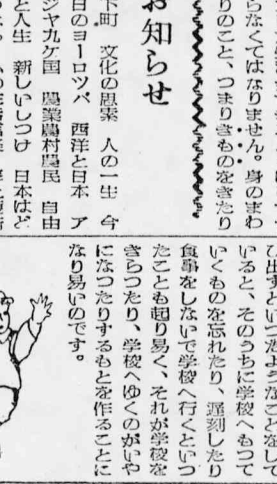 らなくてはなりません。身のまわ
りのこと、つまりきものをきたり
お知らせ
下町　文化の恩素　人の一生　今
日のヨーロツパ　西洋と日本　ア
ジヤ九ケ国　農業農村農民　自由
と人生　新しいしつけ　日本はど
び出すといつたようなことをして
いると、そのうちに学校へもつて
いくものを忘れたり、遅刻したり
食事をしないで学校へ行くといつ
たことも起り易く、それが学校を
きらつたり、学校へゆくのがいや
になつたりするもとを作ることに
なり易いのです。